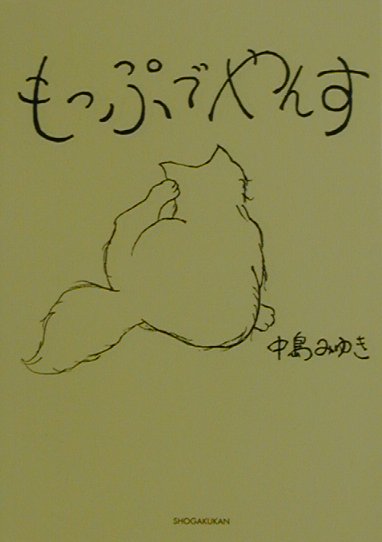 もっぷでやんす
中島みゆき
SHOGAKUKAN